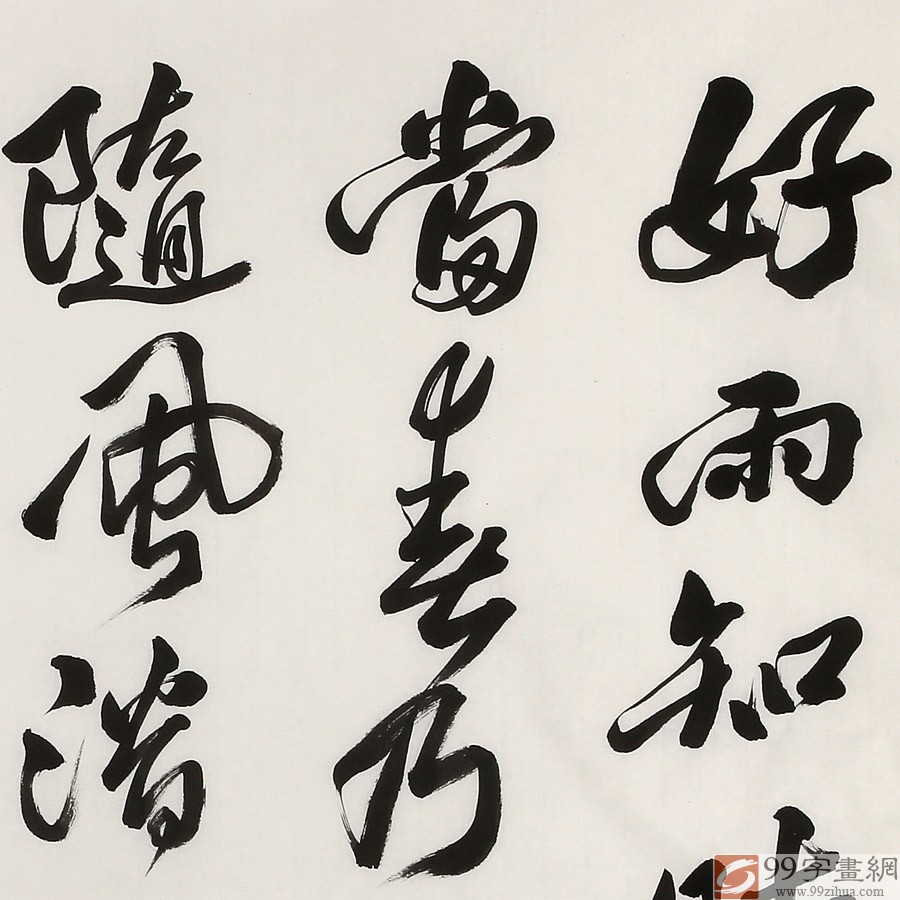 好雨知
當春乃
隨風潛
99字畫網
www.99zihua.com